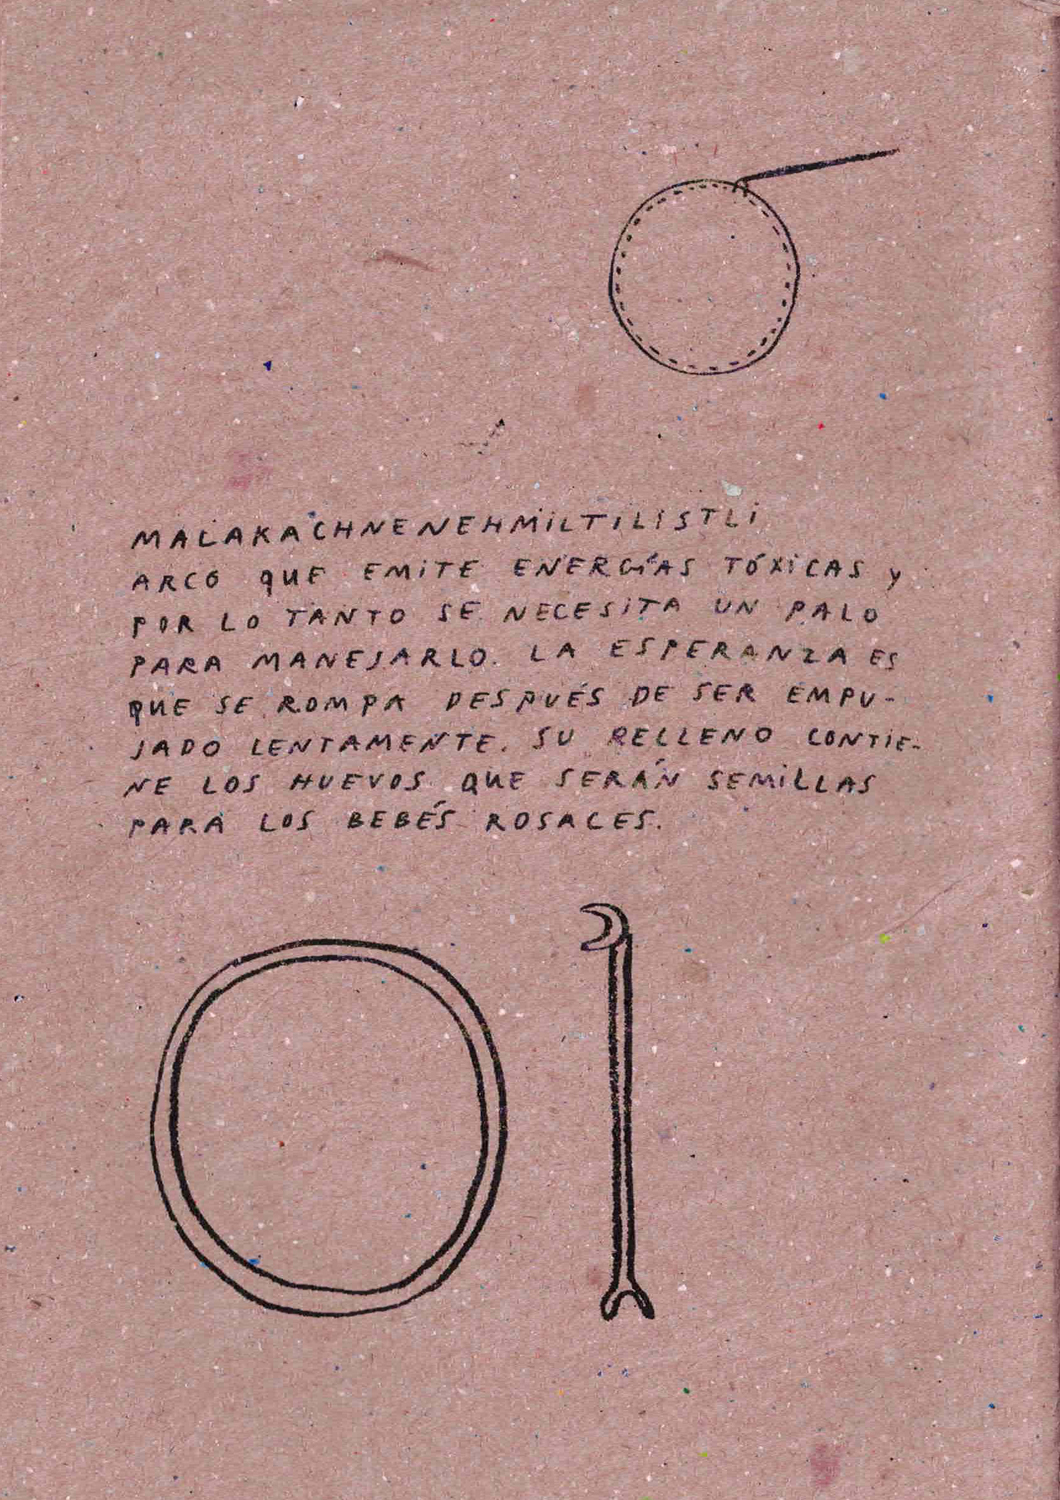 MALAKACHNENEHMILTILISTLI
ARCO QUE EMITE ENERGÍAS TÓXICAS Y
POR LO TANTO SE NECESITA UN PALO
PARA MANEJARLO. LA ESPERANZA ES
QUE SE ROMPA DESPUÉS DE SER EMPU-
JADO LENTAMENTE. SU RELLENO CONTIE-
NE LOS HUEVOS QUE SERÁN SEMILLAS
PARA LOS BEBÉS ROSALES.